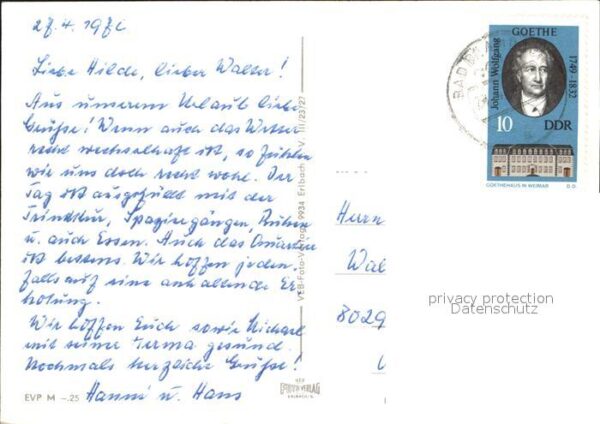 27.4.197
Liebe Hilde, lieber Walter!
Aus unserem Urlaub liebe
Grüße! Wenn auch das Wetter
recht wechselhaft ist, so fühlen
wir uns doch recht wohl. Der
Tag ist ausgefüllt mit der
Trinkkur, Spaziergängen, Ruhen
u. auch Essen. Auch das Quartier
ist bestens. Wir hoffen jeden-
falls auf eine anhaltende Er-
holung.
Wir hoffen Euch sowie Michael
mit seiner Irma gesund.
Nochmals herzliche Grüße!
Hanni u. Hans
EVP M -.25
VEB-Foto-Verlag 9934 Erlbach V. III/23/27
VEB
FOTO-VERLAG
ERLBACH
BAD
Johann Wolfgang
GOETHE
1749-1832
10 DDR
GOETHEHAUS IN WEIMAR
D.D.
Herrn
Wal
8029
privacy protection
Datenschutz